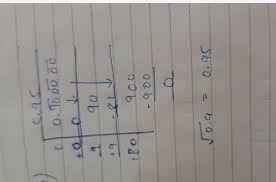 0.95
0
+0 0
9 90
+9 -81
180 900
-900
0
√0.9 = 0.95